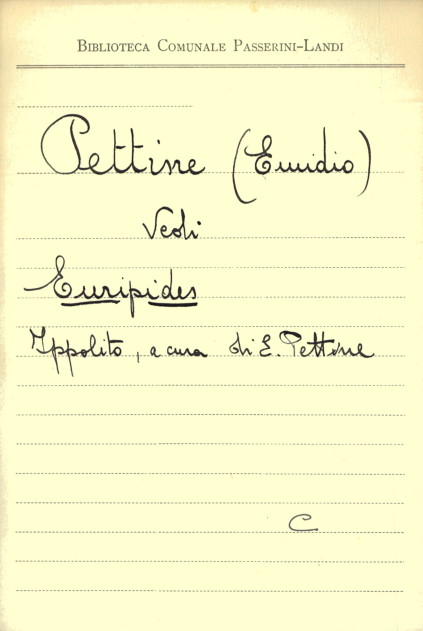 Biblioteca Comunale Passerini-Landi
Pettine (Emidio)
Vedi
Euripides
Ippolito, a cura di E. Pettine
C